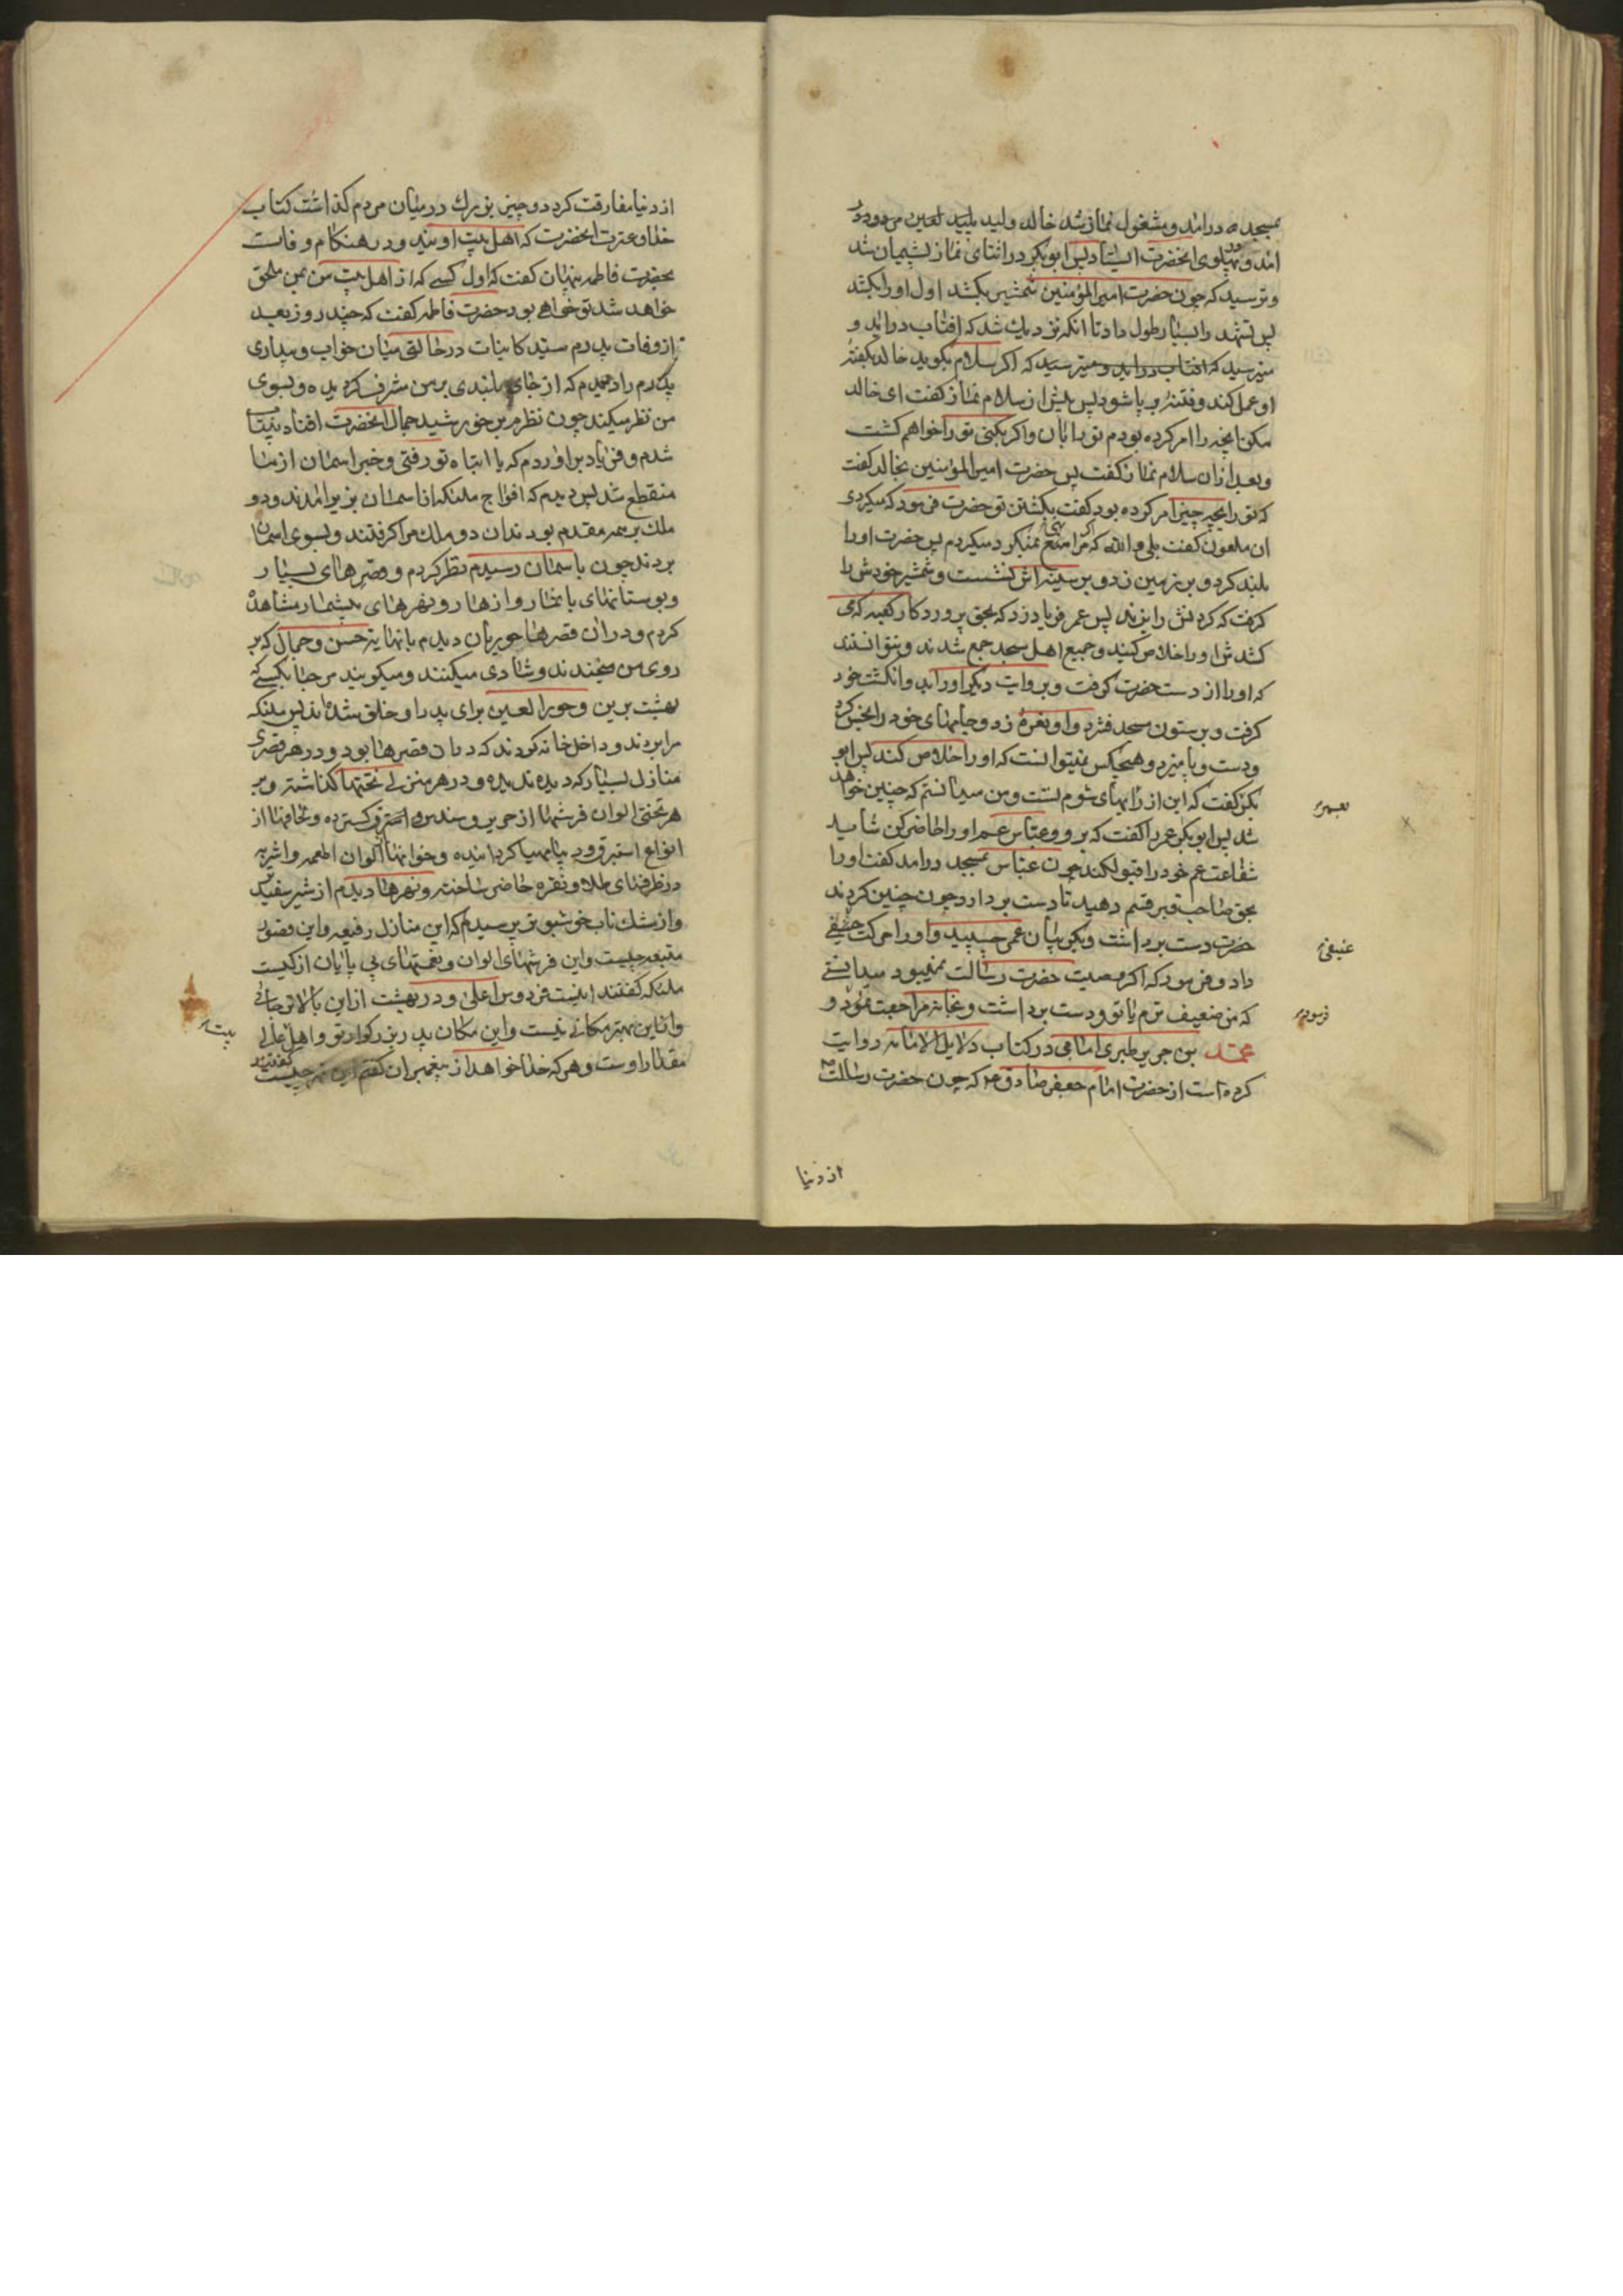 بمسجد درامد و مشغول نماز شد خالد ولید پلید لعین مردود در
امد و در پهلوی انحضرت ایستاد پس ابوبکر در اثنای نماز پشیمان شد
و ترسید که چون حضرت امیرالمؤمنین شمشیر بکشد اول او را بکشد
پس تشهد را بسیار طول داد تا انکه نزدیک شد که افتاب دراید و
میترسید که افتاب دراید و میترسید که اکر سلام بکوید خالد بکفته
او عمل کند و فتنه بر پا شود پس پیش از سلام نماز کفت ای خالد
مکن انچه را امر کرده بودم تو را بان و اکر بکنی تو را خواهم کشت
و بعد ازان سلام نماز کفت پس حضرت امیرالمؤمنین بخالد کفت
که تو را بچه چیز امر کرده بود کفت بکشتن تو حضرت فرمود که میکردی
ان ملعون کفت بلی والله که اکر مرا منع نمیکرد میکردم پس حضرت او را
بلند کرد و بر زمین زد و بر سینه اش نشست و شمشیر خودش را
کرفت که کردنش را بزند پس عمر فریاد زد که بحق پروردکار کعبه که می
کشدش او را خلاص کنید و جمیع اهل مسجد جمع شدند و نتوانستند
که او را از دست حضرت کرفت و بروایت دیکر او را بدو انکشت خود
کرفت و بر ستون مسجد فشرد و او نعره زد و جامهای خود را نجس کرد
و دست و پا میزد و هیچکس نمیتوانست که او را خلاص کند پس ابو
بکر کفت که این از رایهای شوم تست و من میدانستم که چنین خواهد
شد پس ابوبکر عمر را کفت که برو و عباس عم او را حاضر کن شاید
شفاعت عم خود را قبول کند چون عباس بمسجد درامد کفت او را
بحق صاحب قبر قسم دهید تا دست بردارد چون چنین کردند
حضرت دست برداشت و بکریبان عمر چسپید و او را حرکت عنیفی
داد و فرمود که اکر وصیت حضرت رسالت نمیبود میدانستی
که من ضعیف ترم یا تو و دست برداشت و بخانه مراجعت نمود و
محمد بن جریر طبری امامی در کتاب دلایل الامامه روایت
کرده است از حضرت امام جعفر صادق ع که چون حضرت رسالت ص
بعمر
عنیفی
فرمود
از دنیا
از دنیا مفارقت کرد دو چیز بزرك در میان مردم کذاشت کتاب
خدا و عترت انحضرت که اهل بیت اویند و در هنکام وفات
بحضرت فاطمه پنهان کفت که اول کسی که از اهل بیت من بمن ملحق
خواهد شد تو خواهی بود حضرت فاطمه کفت که چند روز بعد
از وفات پدرم سید کاینات در حالتی میان خواب و بیداری
پدرم را دیدم که از جای بلندی بر من مشرف کردیده و بسوی
من نظر میکند چون نظرم بر خورشید جمال انحضرت افتاد بیتاب
شدم و فریاد براوردم که یا ابتاه تو رفتی و خبر اسمان از ما
منقطع شد پس دیدم که افواج ملئکه از اسمان بزیر امدند و دو
ملك بر همه مقدم بودند ان دو ملك مرا کرفتند و بسوی اسمان
بردند چون باسمان رسیدم نظر کردم و قصرهای بسیار
و بوستانهای با نضار و ازهار و نهرهای بیشمار مشاهده
کردم و دران قصرها حوریان دیدم با نهایة حسن و جمال که بر
روی من میخندند و شادی میکنند و میکویند مرحبا بکسی که
بهشت برین و حورالعین برای پدر او خلق شده اند پس ملئکه
مرا بردند و داخل خانه کردند که دران قصرها بود و در هر قصری
منازل بسیار که دیده ندیده و در هر منزلی تختها کذاشته و بر
هر تختی الوان فرشها از حریر و سندس و استبرق کسترده و لحافها از
انواع استبرق و دیبا مهیا کردانیده و خوانها الوان اطعمه و اشربه
در ظرفهای طلا و نقره حاضر ساخته و نهرها دیدم از شیر سفید تر
و از مشك ناب خوشبو تر پرسیدم که این منازل رفیعه و این قصور
منیعه چیست و این فرشهای الوان و نعمتهای بی پایان از کیست
ملئکه کفتند اینست فردوس اعلی و در بهشت ازین بالاتر جائی
و ازین بهتر مکانی نیست و این مکان پدر بزرکوار تو و اهل عالی
مقدار اوست و هر که خدا خواهد از پیغمبران کفتم این نهر چیست کفتند
بیت